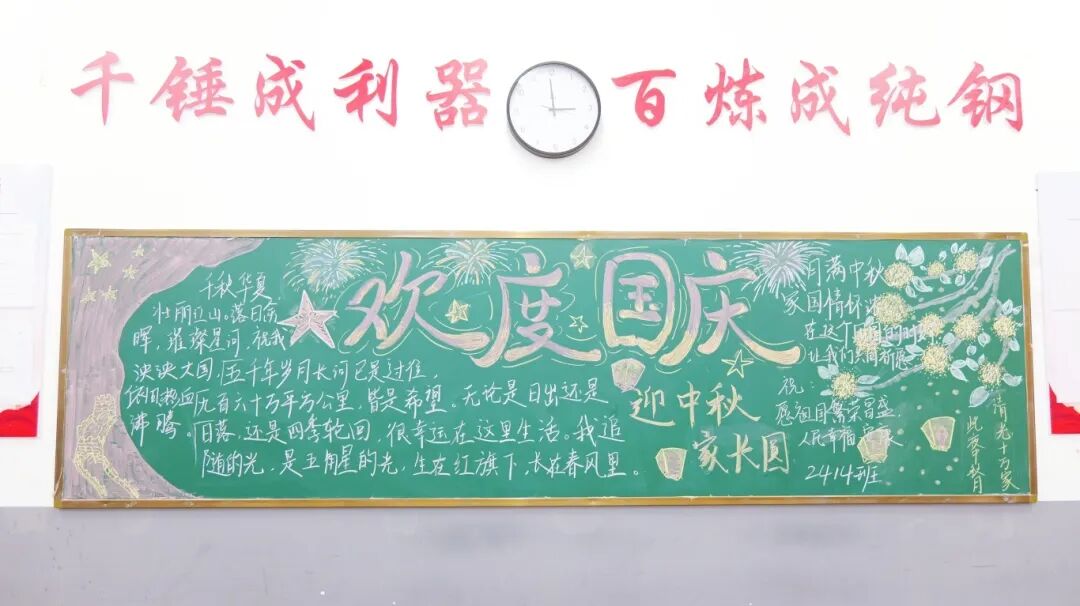 千锤成利器 百炼成纯钢
欢度国庆
迎中秋
家长圆
千秋华夏
壮丽江山。落日余
晖,璀璨星河,祝我
泱泱大国,五千年岁月长河已是过往,
依旧热血九百六十万平方公里,皆是希望。无论是日出还是
沸腾。日落,还是四季轮回,很幸运在这里生活。我追
随的光,是五角星的光,生在红旗下,长在春风里。
月满中秋
家国情怀
在这个
让我们共同祈愿
祝:
愿祖国繁荣昌盛,
人民幸福
2414班
清光十万家
此夜